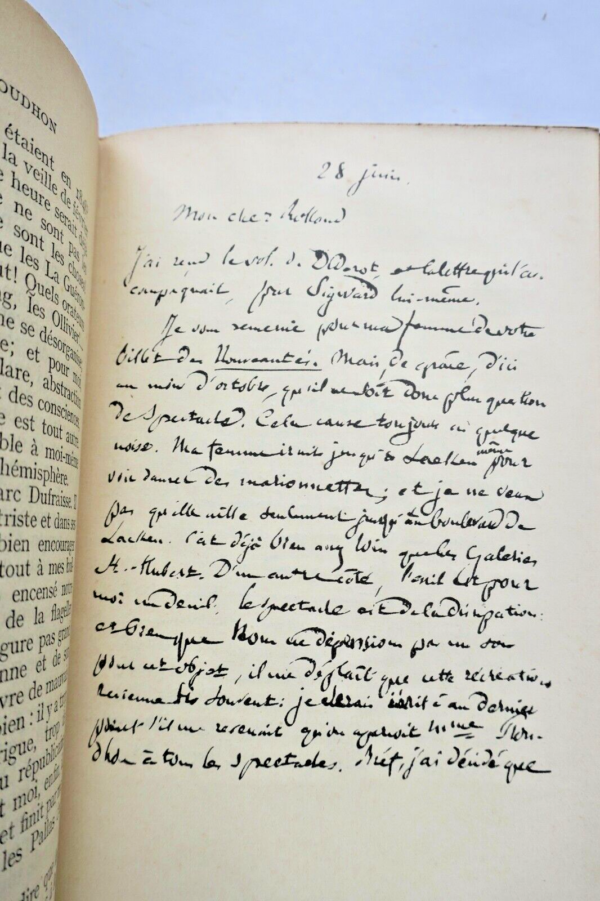 OUDHON
étaient en
la veille de
heure serait
ne sont pas
sont les choses
que les La
ut! Quels orateurs
ng, les Ollivier
ne se désorganise
e; et pour moi
lare, abstraction
des consciences
e est tout autre
ble à moi-même
hémisphère.
arc Dufraisse. Il
triste et dans ses
bien encourager
tout à mes
encensé
de la
gure pas
nne et de
vre de
bien : il y a
rigue, trop
u républicain
t moi,
et finit par
les
dire que
28 juin.
Mon cher Rolland
J'ai rend le vol. de Diderot, et la lettre qui l'ac-
compagnait, pour Sigward lui-même.
Je vous remercie pour ma femme de votre
billet des Nouveautés. Mais, de grâce, d'ici
au mois d'octobre, qu'il ne soit donc plus question
de spectacles. Cela cause toujours ici quelque
noise. Ma femme irait jusqu'à Laeken même pour
voir danser des marionnettes; et je ne veux
pas qu'elle aille seulement jusqu'au boulevard de
Laeken. C'est déjà bien assez loin que les Galeries
St-Hubert. D'un autre côté, l'exil est pour
moi un deuil, le spectacle est de la dissipation:
et bien que nous ne dépensions pas un sou
pour cet objet, il me déplaît que cette récréation
revienne si souvent: je serais irrité au dernier
point s'il me revenait qu'on aperçoit Mme Prou-
dhon à tous les spectacles. Bref, j'ai décidé que